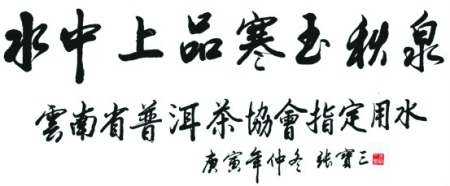 水中上品寒玉秋泉
雲南省普洱茶協會指定用水
庚寅年仲冬 張寶三